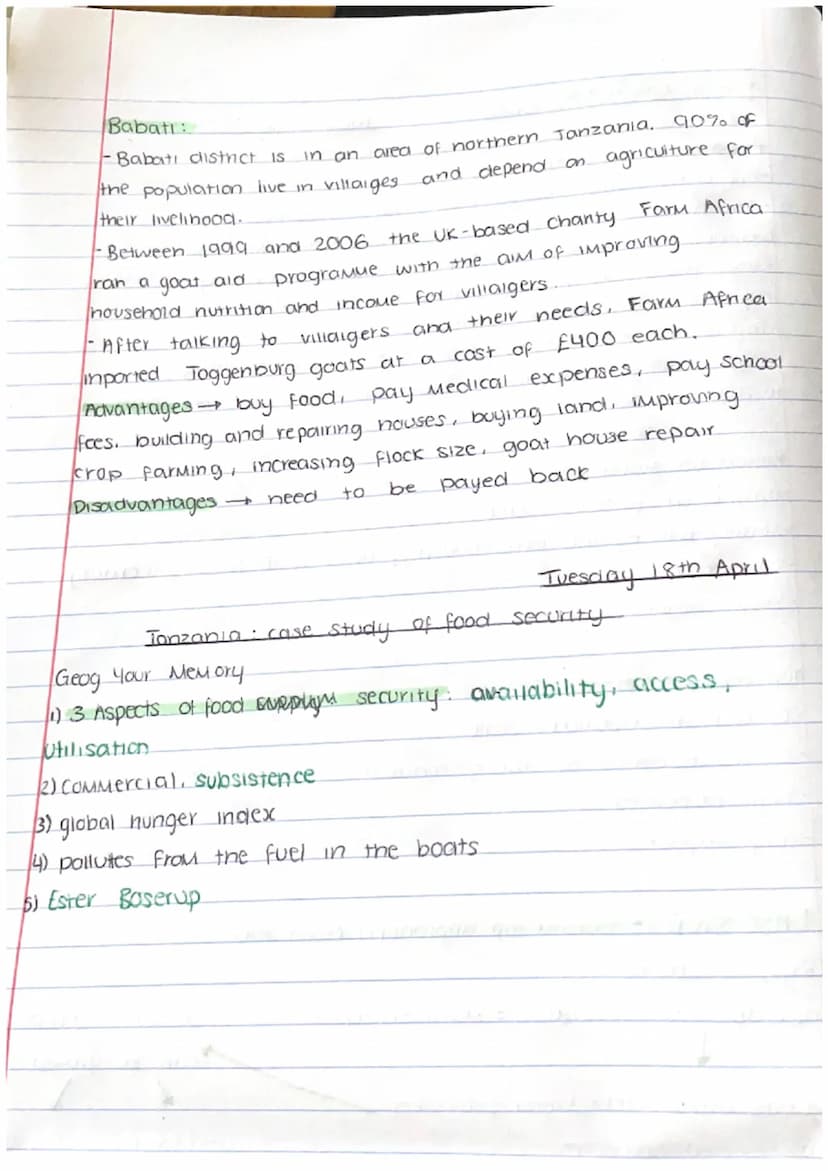 Babati:
- Babati district is in an area of northern Tanzania. 90% of
the population live in villaiges and depend on agriculture for
their livelihood.
- Between 1999 and 2006 the UK-based charity Farm Africa
ran a goat aid programme with the aim of improving
household nutrition and income for villaigers.
- After talking to villaigers and their needs, Farm Africa
inported Toggenburg goats at a cost of £400 each.
Advantages → buy food, pay medical expenses, pay school
fees, building and repairing houses, buying land, improving
crop farming, increasing flock size, goat house repair
Disadvantages → need to be payed back
Tuesday 18th April
Tanzania: case study of food security
Geog Your Memory
1) 3 Aspects of food security: availability, access,
utilisation
2) commercial, subsistence
3) global hunger index
4) pollutes from the fuel in the boats
5) Ester Boserup